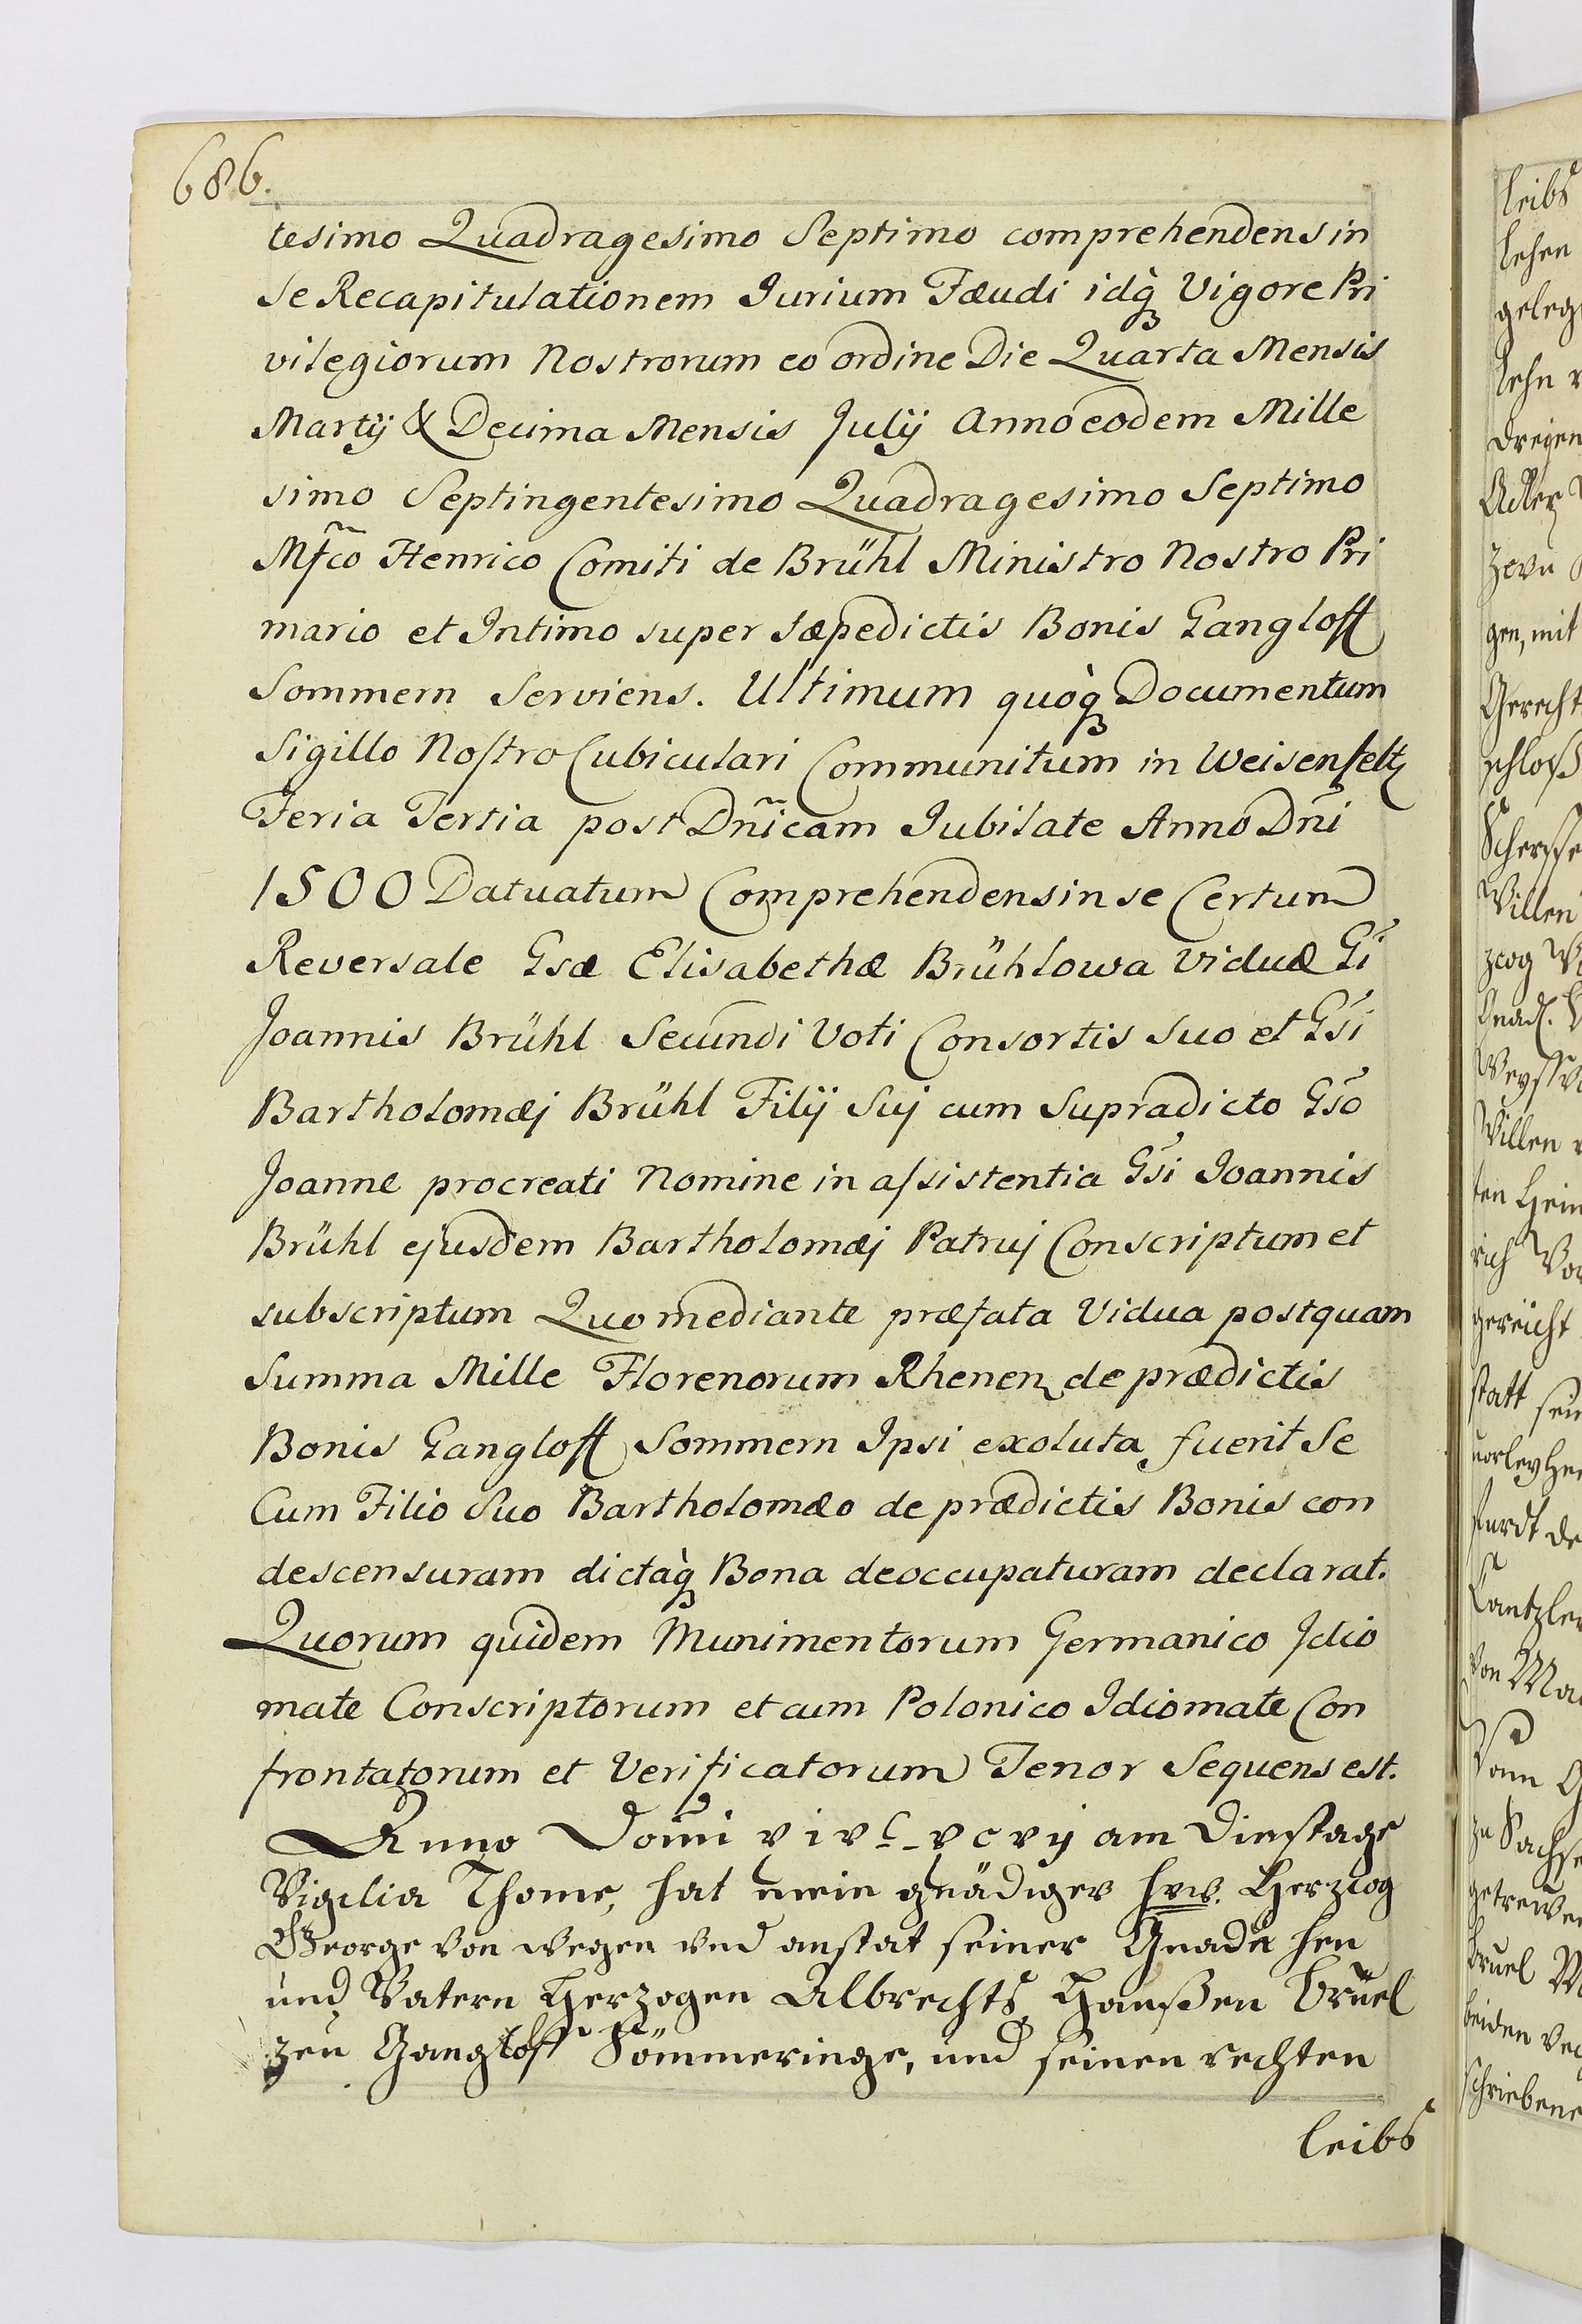 686.
tesimo Quadragesimo Septimo comprehendens in
se Recapitulationem Jurium Fæudi idq̀ꝫ Vigore Pri
vilegiorum Nostrorum eo ordine Die Quarta Mensis
Martÿ & Decima Mensis Julÿ Anno eodem Mille
simo Septingentesimo Quadragesimo Septimo
Mf̃co Henrico Comiti de Brühl Ministro Nostro Pri
mario et Intimo super sæpedictis Bonis Gangloff
Sommern Serviens. Ultimum quòqꝫ Documentum
Sigillo Nostro Cubiculari Communitum in Weisenfeltz
Feria Tertia post Dñicam Jubilate Anno Dñi
1500 Datuatum Comprehendens in se Certum
Reversale Gsæ Elisabethæ Brühlowa Viduæ Gi
Joannis Brühl Secundi Voti Consortis suo et Gsi
Bartholomæj Brühl Filÿ Suj cum Supradicto Gso
Joanne procreati Nomine in assistentia Gsi Joannis
Brühl ejusdem Bartholomæj Patruj Conscriptum et
subscriptum Quo mediante præfata Vidua postquam
Summa Mille Florenorum Rhenen de prædictis
Bonis Gangloff Sommern Ipsi exoluta fuerit Se
Cum Filio Suo Bartholomæo de prædictis Bonis con
descensuram dictaq̀ꝫ Bona deoccupaturam declarat.
Quorum quidem Munimentorum Germanico Idio
mate Conscriptorum et cum Polonico Idiomate Con
frontatorum et Verificatorum Tenor Sequens est.
Anno Domi v i v c_ v c v ij am Dinstage
Vigilia Thome, hat mein gnädiger hrw. Hertzog
George von wegen vnd anstat seiner Gnade hen
und Vatern Hertzogen Albrechts Haußen Brüel
zeu Gangloff Sömmeringe, und seinen rechten
leibs
leibs
lehen
geleg
lehn
dreyen
Adler
zcru
gen, mit
Gerecht
schloß
Villen
zcog
Gnad.
Villen
ten Hein
rich Vo
gereicht
statt sein
furdt de
Cantzler
von Ma
Vonn G
zu Sachse
getrewe
bruel
beiden
schriebene